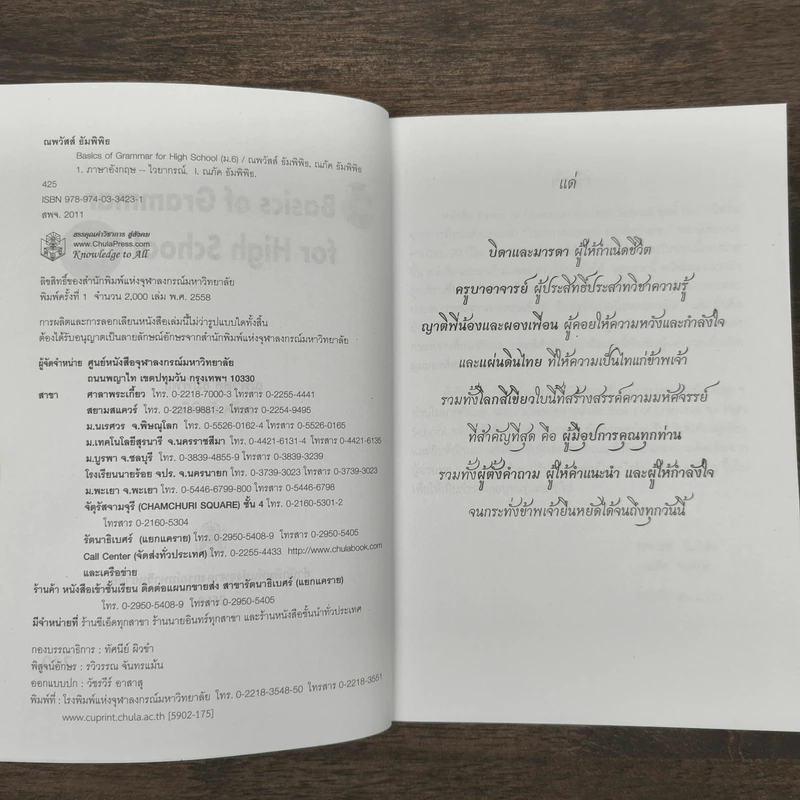 ณพวัสส์ ธัมพิพิธ
Basics of Grammar for High School (ม.6) / ณพวัสส์ ธัมพิพิธ, ณภัค ธัมพิพิธ
1. ภาษาอังกฤษ - ไวยากรณ์. I. ณภัค ธัมพิพิธ.
425
ISBN 978-974-03-3423-1
สพจ. 2011
สรรคุณค่าวิชาการ สู่สังคม
www.ChulaPress.com
Knowledge to All
ลิขสิทธิ์ของสำนักพิมพ์แห่งจุฬาลงกรณ์มหาวิทยาลัย
พิมพ์ครั้งที่ 1 จำนวน 2,000 เล่ม พ.ศ. 2558
การผลิตและการลอกเลียนหนังสือเล่มนี้ไม่ว่ารูปแบบใดทั้งสิ้น
ต้องได้รับอนุญาตเป็นลายลักษณ์อักษรจากสำนักพิมพ์แห่งจุฬาลงกรณ์มหาวิทยาลัย
ผู้จัดจำหน่าย ศูนย์หนังสือจุฬาลงกรณ์มหาวิทยาลัย
ถนนพญาไท เขตปทุมวัน กรุงเทพฯ 10330
สาขา ศาลาพระเกี้ยว โทร. 0-2218-7000-3 โทรสาร 0-2255-4441
สยามสแควร์ โทร. 0-2218-9881-2 โทรสาร 0-2254-9495
ม.นเรศวร จ.พิษณุโลก โทร. 0-5526-0162-4 โทรสาร 0-5526-0165
ม.เทคโนโลยีสุรนารี จ.นครราชสีมา โทร. 0-4421-6131-4 โทรสาร 0-4421-6135
ม.บูรพา จ.ชลบุรี โทร. 0-3839-4855-9 โทรสาร 0-3839-3239
โรงเรียนนายร้อย จปร. จ.นครนายก โทร. 0-3739-3023 โทรสาร 0-3739-3023
ม.พะเยา จ.พะเยา โทร. 0-5446-6799-800 โทรสาร 0-5446-6798
จัตุรัสจามจุรี (CHAMCHURI SQUARE) ชั้น 4 โทร. 0-2160-5301-2
โทรสาร 0-2160-5304
รัตนาธิเบศร์ (แยกแคราย) โทร. 0-2950-5408-9 โทรสาร 0-2950-5405
Call Center (จัดส่งทั่วประเทศ) โทร. 0-2255-4433 http://www.chulabook.com
และเครือข่าย
ร้านค้า หนังสือเข้าชั้นเรียน ติดต่อแผนกขายส่ง สาขารัตนาธิเบศร์ (แยกแคราย)
โทร. 0-2950-5408-9 โทรสาร 0-2950-5405
มีจำหน่ายที่ ร้านซีเอ็ดทุกสาขา ร้านนายอินทร์ทุกสาขา และร้านหนังสือชั้นนำทั่วประเทศ
กองบรรณาธิการ : ทัศนีย์ ผิวขำ
พิสูจน์อักษร : รวิวรรณ จันทรแม้น
ออกแบบปก : วัชรวีร์ อาสาสุ
พิมพ์ที่ : โรงพิมพ์แห่งจุฬาลงกรณ์มหาวิทยาลัย โทร. 0-2218-3548-50 โทรสาร 0-2218-3551
www.cuprint.chula.ac.th [5902-175]
แด่
บิดาและมารดา ผู้ให้กำเนิดชีวิต
ครูบาอาจารย์ ผู้ประสิทธิ์ประสาทวิชาความรู้
ญาติพี่น้องและผองเพื่อน ผู้คอยให้ความหวังและกำลังใจ
และแผ่นดินไทย ที่ให้ความเป็นไทแก่ข้าพเจ้า
รวมทั้งโลกสีเขียวใบนี้ที่สร้างสรรค์ความมหัศจรรย์
ที่สำคัญที่สุด คือ ผู้มีอุปการคุณทุกท่าน
รวมทั้งผู้ตั้งคำถาม ผู้ให้คำแนะนำ และผู้ให้กำลังใจ
จนกระทั่งข้าพเจ้ายืนหยัดได้จนถึงทุกวันนี้